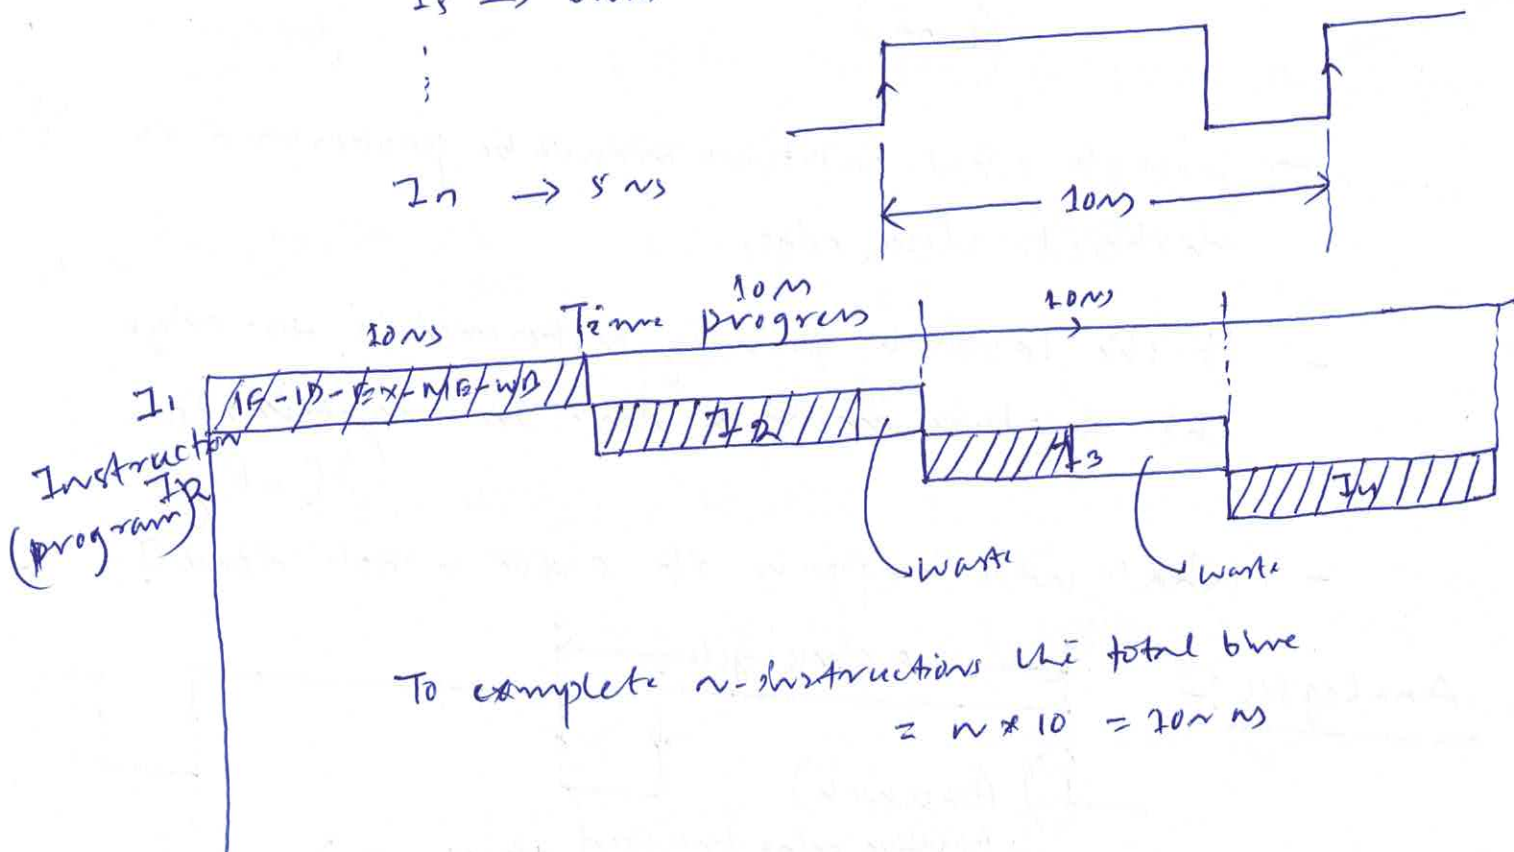 In → 5 ns
10ns
10ns
Time progress
10ns
10ns
I1
IF-ID-EX-MEM-WB
I2
I3
I4
Instruction
I2
(program)
waste
waste
To complete n-instructions the total time
= n * 10 = 10n ns